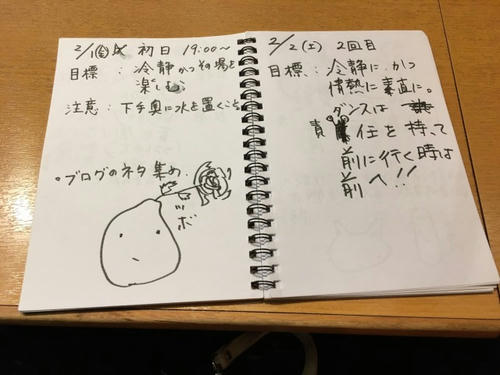 2/1(金) 初日 19:00〜
目標:冷静かつその場を
楽しむ
注意:下手奥に水を置くこと
・ブログのネタ集め.
ロッ
ボ
2/2(土) 2回目
目標:冷静に、かつ
情熱に素直に。
ダンスは
責任を持って
前に行く時は
前へ!!